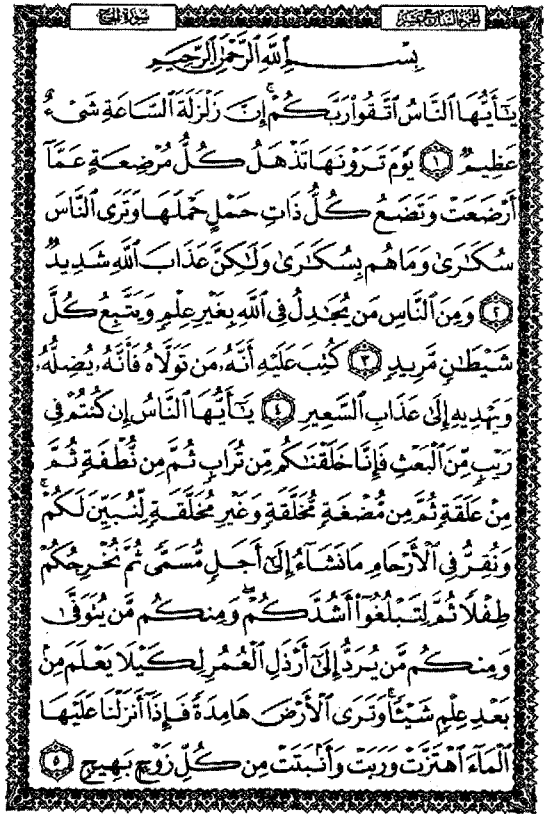 سورة الحج
الجزء السابع عشر
بِسْمِ اللَّهِ الرَّحْمَٰنِ الرَّحِيمِ
يَٰٓأَيُّهَا ٱلنَّاسُ ٱتَّقُوا۟ رَبَّكُمْ ۚ إِنَّ زَلْزَلَةَ ٱلسَّاعَةِ شَىْءٌ
عَظِيمٌ ١ يَوْمَ تَرَوْنَهَا تَذْهَلُ كُلُّ مُرْضِعَةٍ عَمَّآ
أَرْضَعَتْ وَتَضَعُ كُلُّ ذَاتِ حَمْلٍ حَمْلَهَا وَتَرَى ٱلنَّاسَ
سُكَٰرَىٰ وَمَا هُم بِسُكَٰرَىٰ وَلَٰكِنَّ عَذَابَ ٱللَّهِ شَدِيدٌ
٢ وَمِنَ ٱلنَّاسِ مَن يُجَٰدِلُ فِى ٱللَّهِ بِغَيْرِ عِلْمٍ وَيَتَّبِعُ كُلَّ
شَيْطَٰنٍ مَّرِيدٍ ٣ كُتِبَ عَلَيْهِ أَنَّهُۥ مَن تَوَلَّاهُ فَأَنَّهُۥ يُضِلُّهُۥ
وَيَهْدِيهِ إِلَىٰ عَذَابِ ٱلسَّعِيرِ ٤ يَٰٓأَيُّهَا ٱلنَّاسُ إِن كُنتُمْ فِى
رَيْبٍ مِّنَ ٱلْبَعْثِ فَإِنَّا خَلَقْنَٰكُم مِّن تُرَابٍ ثُمَّ مِن نُّطْفَةٍ ثُمَّ
مِنْ عَلَقَةٍ ثُمَّ مِن مُّضْغَةٍ مُّخَلَّقَةٍ وَغَيْرِ مُخَلَّقَةٍ لِّنُبَيِّنَ لَكُمْ ۚ
وَنُقِرُّ فِى ٱلْأَرْحَامِ مَا نَشَآءُ إِلَىٰٓ أَجَلٍ مُّسَمًّى ثُمَّ نُخْرِجُكُمْ
طِفْلًا ثُمَّ لِتَبْلُغُوٓا۟ أَشُدَّكُمْ ۖ وَمِنكُم مَّن يُتَوَفَّىٰ
وَمِنكُم مَّن يُرَدُّ إِلَىٰٓ أَرْذَلِ ٱلْعُمُرِ لِكَيْلَا يَعْلَمَ مِنۢ
بَعْدِ عِلْمٍ شَيْـًٔا ۚ وَتَرَى ٱلْأَرْضَ هَامِدَةً فَإِذَآ أَنزَلْنَا عَلَيْهَا
ٱلْمَآءَ ٱهْتَزَّتْ وَرَبَتْ وَأَنۢبَتَتْ مِن كُلِّ زَوْجٍۭ بَهِيجٍ ٥